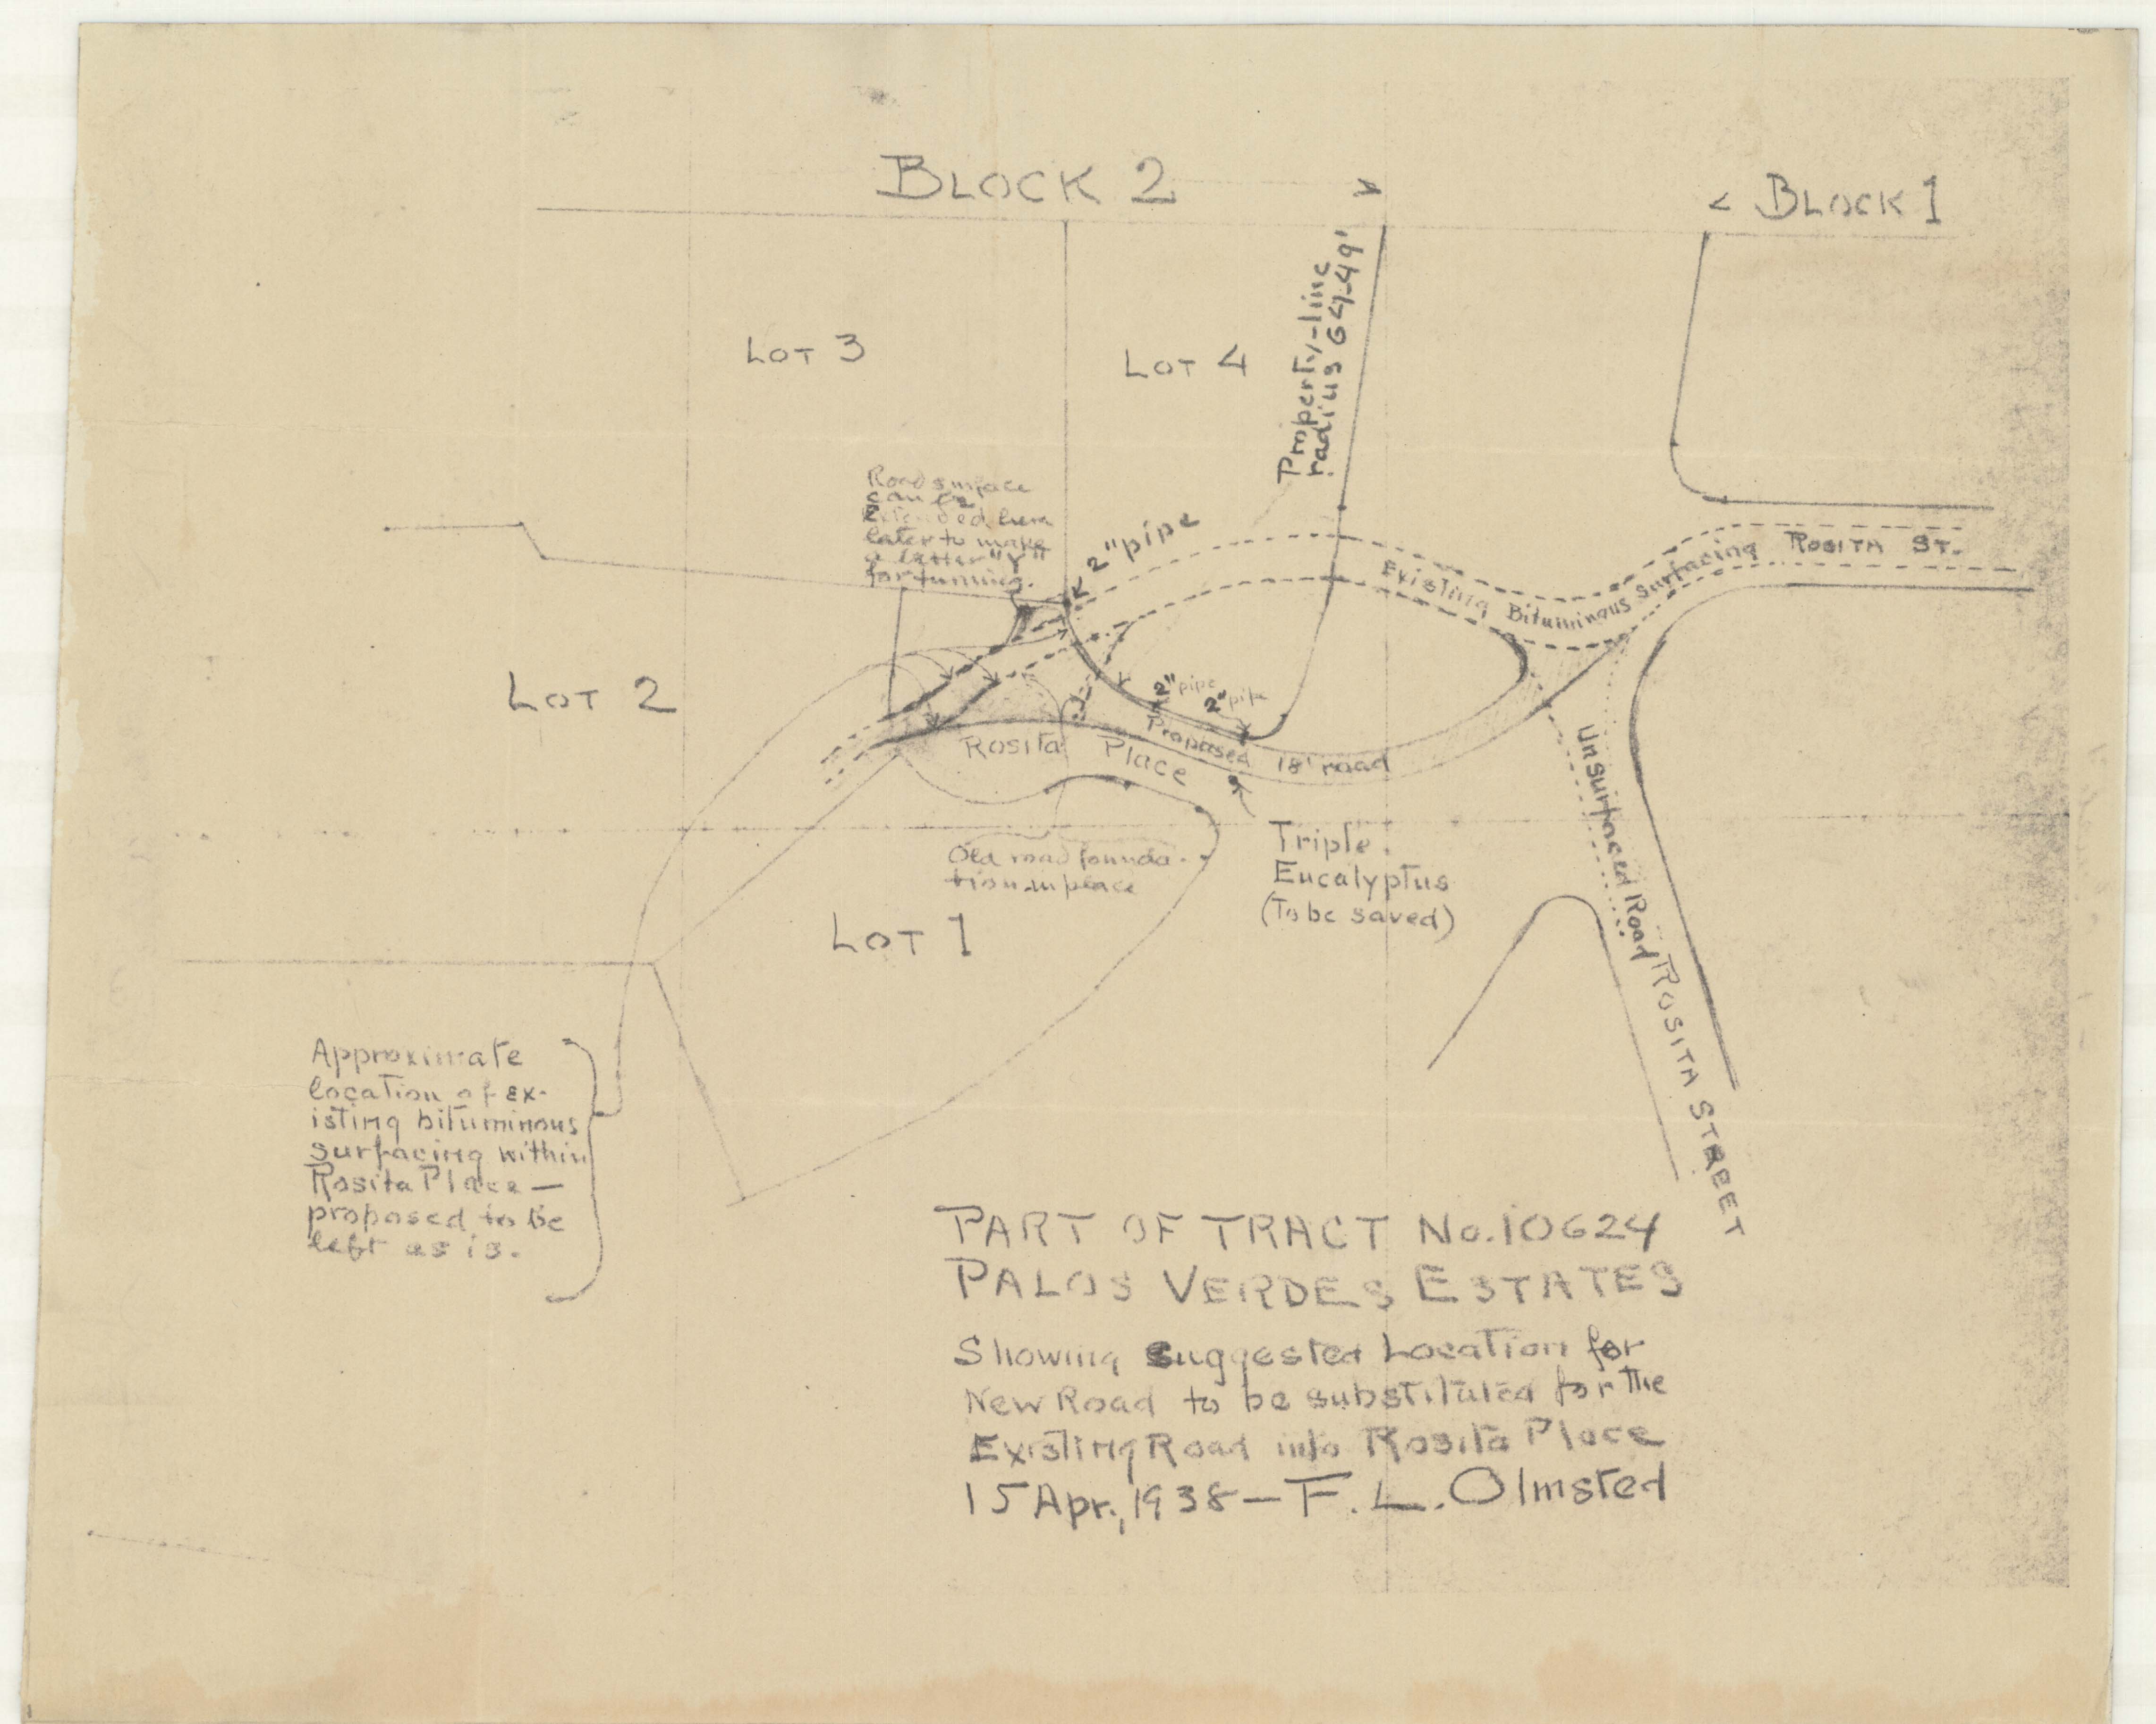 BLOCK 2
< BLOCK 1
LOT 3
LOT 4
Property-line
radius 64.49'
Road surface
can be
Extended here
later to make
a better "Y"
for turning.
2" pipe
Existing Bituminous Surfacing
ROSITA ST.
LOT 2
2" pipe
2" pipe
Rosita Place
Proposed 18' road
Unsurfaced Road
ROSITA STREET
Old road founda-
tion in place
Triple
Eucalyptus
(To be saved)
LOT 1
Approximate
location of ex-
isting bituminous
surfacing within
Rosita Place —
proposed to be
left as is.
PART OF TRACT No. 10624
PALOS VERDES ESTATES
Showing Suggested Location for
New Road to be substituted for the
Existing Road into Rosita Place
15 Apr., 1938 — F. L. Olmsted